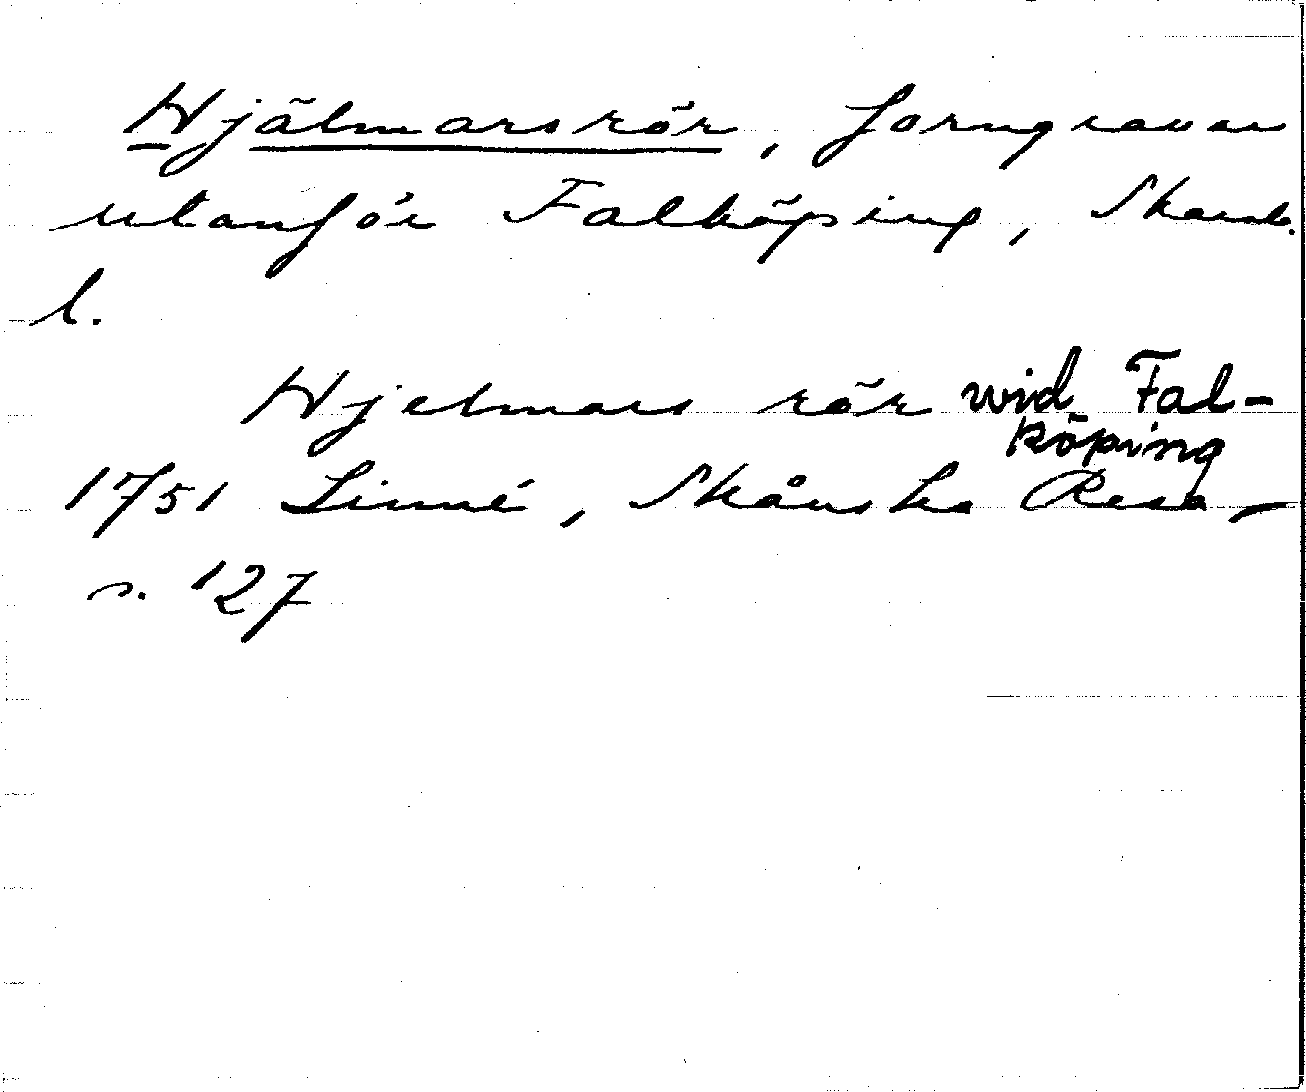 Hjälmarsrör, forngravar
utanför Falköping, Skarab.
l.
Hjelmars rör wid Fal-
köping
1751 Linné, Skånska Resa,
s. 127